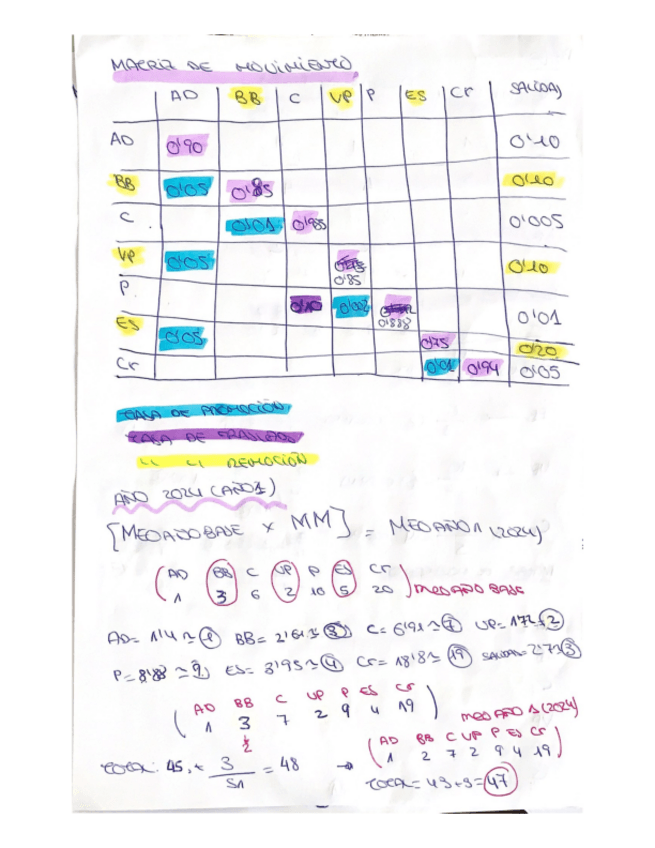 MATRIZ DE MOVIMIENTO
AD BB C VP P ES Cr SALIDAS
AD 0'90 0'10
BB 0'05 0'85 0'10
C 0'01 0'985 0'005
VP 0'05 0'85 0'10
P 0'10 0'002 0'888 0'01
ES 0'05 0'75 0'20
Cr 0'01 0'94 0'05
TASA DE PROMOCIÓN
TASA DE TRASLADO
" " REMOCIÓN
AÑO 2024 (AÑO 1)
[MEO AÑO BASE X MM] = MEO AÑO 1 (2024)
(AD BB C VP P ES Cr
1 3 6 2 10 5 20) MEO AÑO BASE
AD = 1'4 ≃ 1 BB = 2'61 ≃ 3 C = 6'91 ≃ 7 VP = 1'72 ≃ 2
P = 8'88 ≃ 9 ES = 3'95 ≃ 4 Cr = 18'8 ≃ 19 SALIDA = 2'73 3
(AD BB C VP P ES Cr
1 3 7 2 9 4 19)
2
MEO AÑO 1 (2024)
(AD BB C VP P ES Cr
1 2 7 2 9 4 19)
TOTAL: 45 + 3 = 48 →
SA
TOTAL = 43+3 = 47